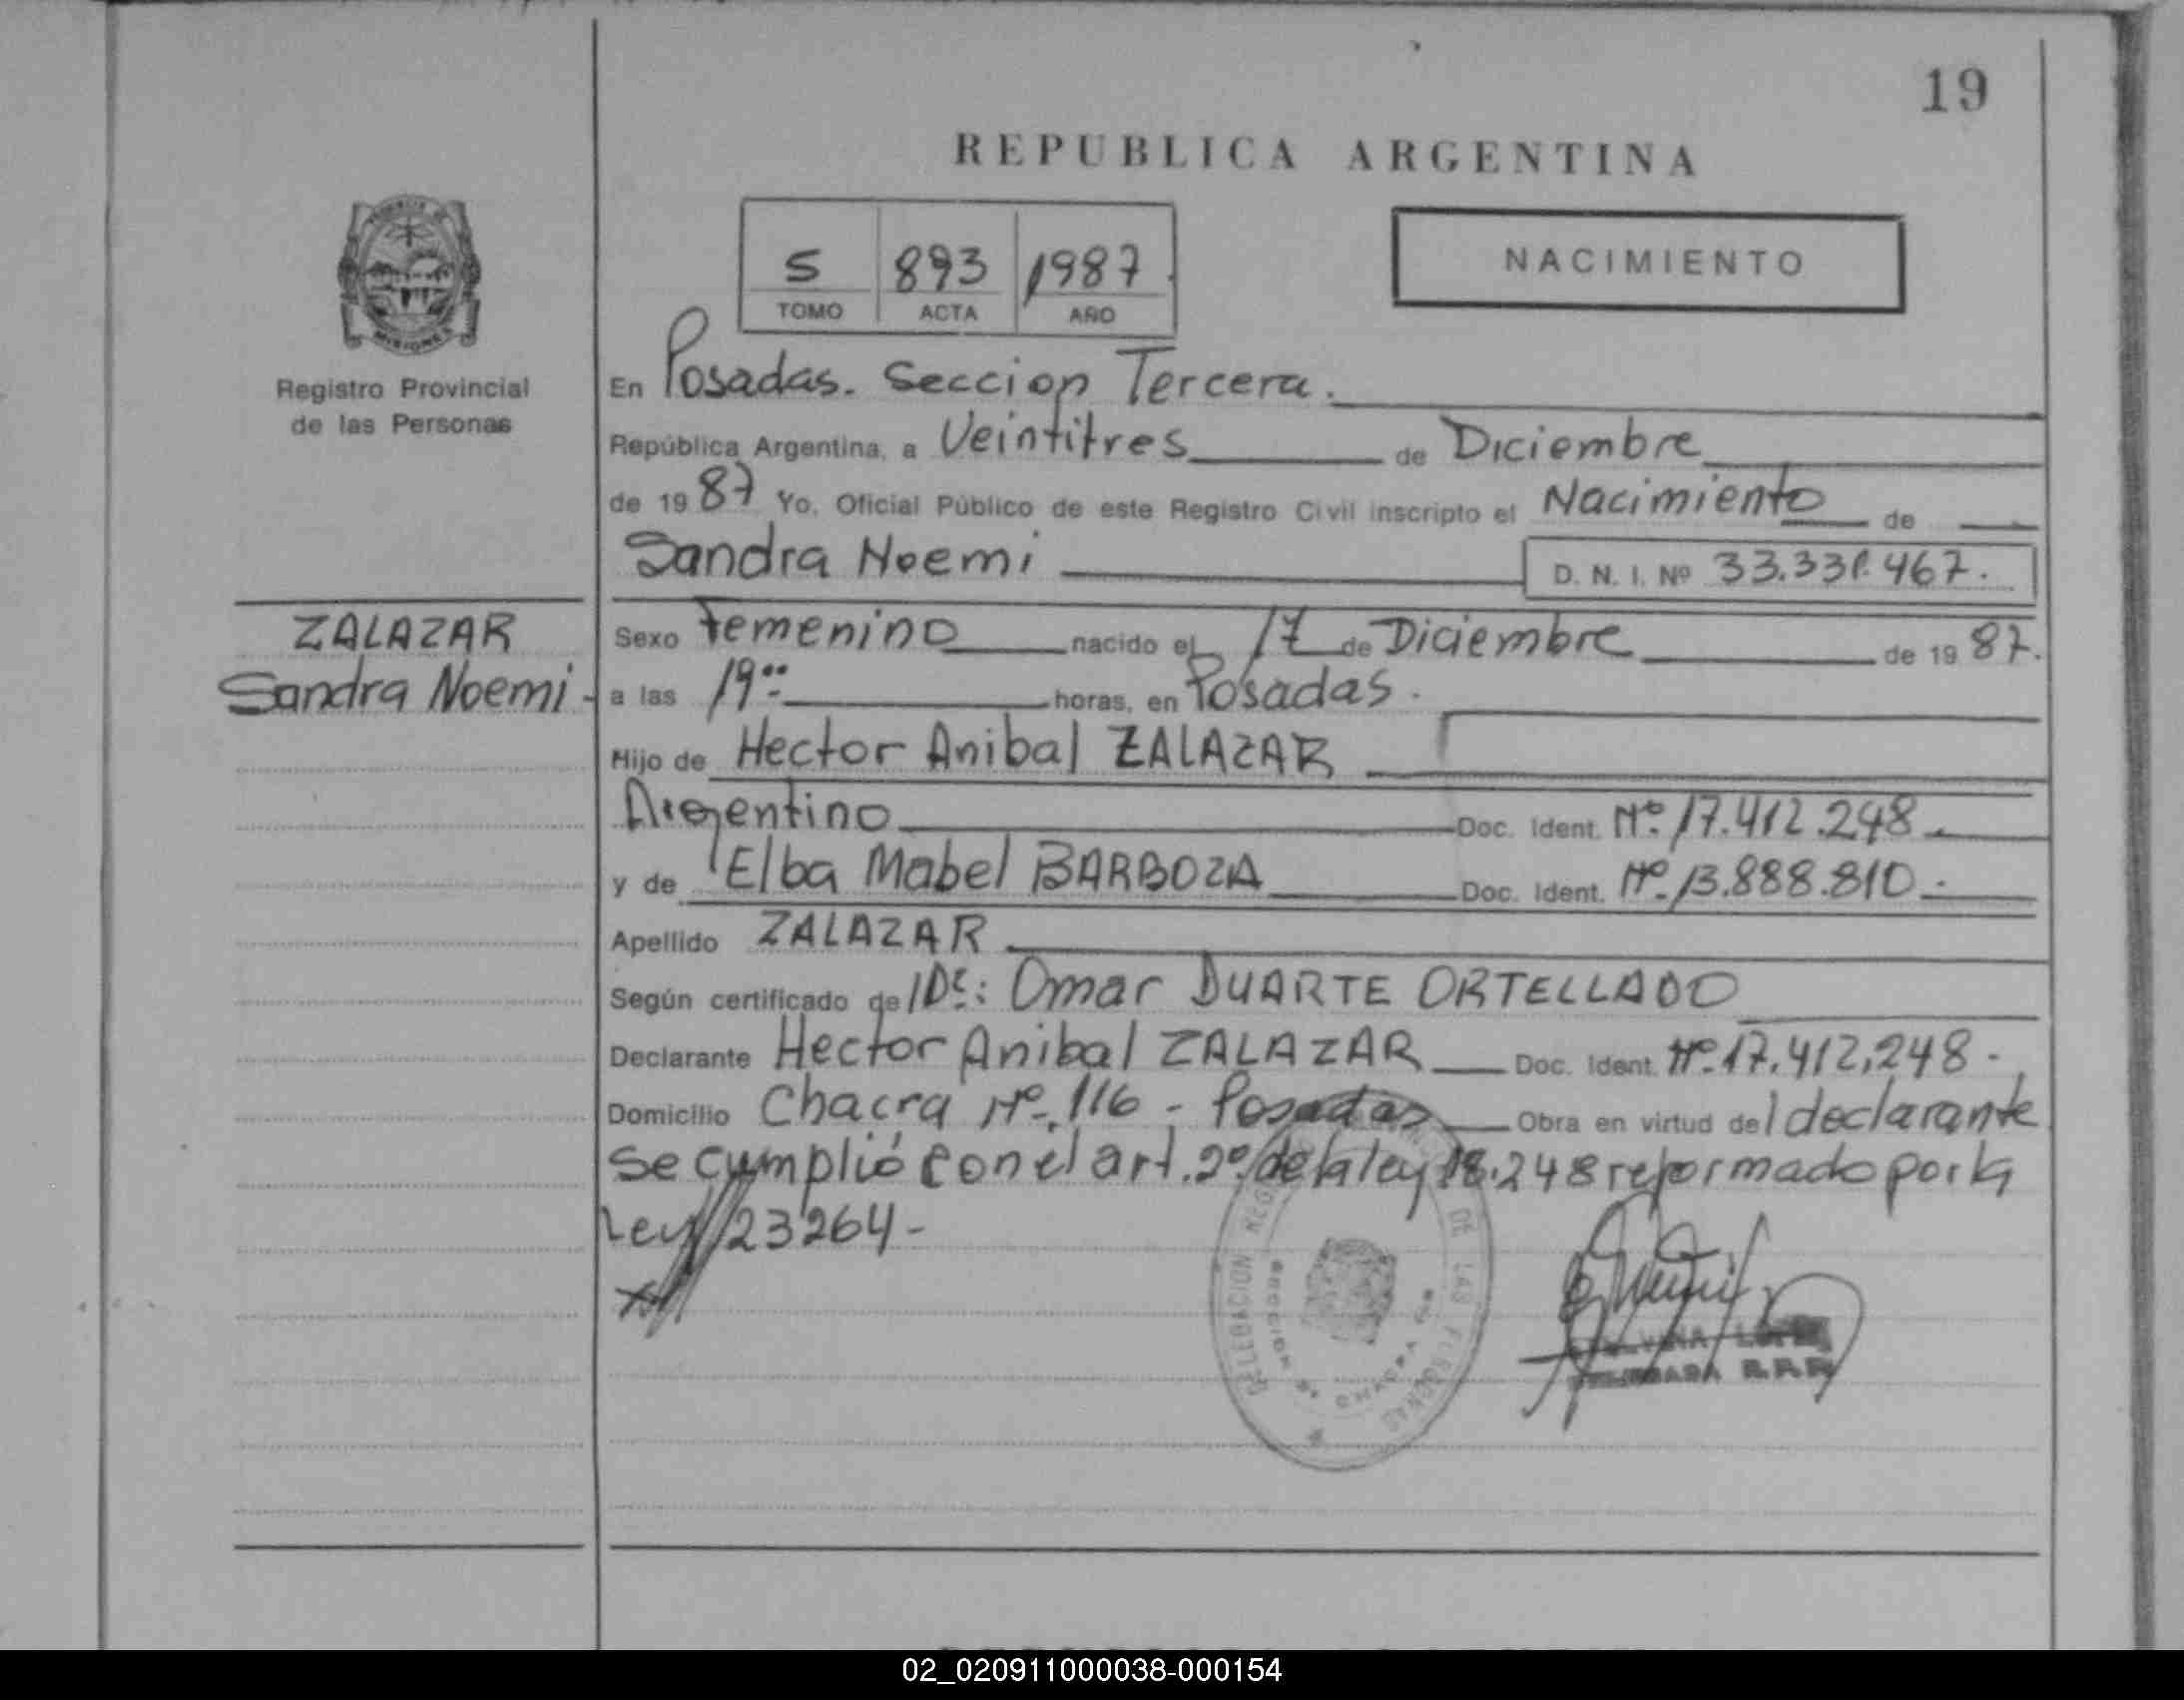 19
REPUBLICA ARGENTINA
5 893 1987
TOMO ACTA AÑO
NACIMIENTO
MISIONES
Registro Provincial
de las Personas
ZALAZAR
Sandra Noemi -
En Posadas. Seccion Tercera.
República Argentina, a Veintitres de Diciembre
de 1987 Yo, Oficial Público de este Registro Civil inscripto el Nacimiento de
Sandra Noemi D. N. I. Nº
Sexo Femenino nacido el 17 de Diciembre de 1987.
a las 19 horas, en Posadas.
Hijo de Hector Anibal ZALAZAR
Argentino Doc. Ident. Nº. 17.412.248.
y de Elba Mabel BARBOZA Doc. Ident. Nº. 13.888.810.
Apellido ZALAZAR
Según certificado de Omar DUARTE ORTELLADO
Declarante Hector Anibal ZALAZAR Doc. Ident. Nº. 17.412.248 -
Domicilio Chacra Nº. 116 - Posadas Obra en virtud del declarante
Se cumplió con el art. 2º. de la ley 18.248 reformado por la
Ley 23264 -
DELEGACION DE LAS PERSONAS
02_020911000038-000154